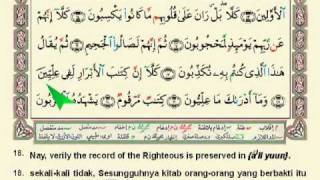 ٱلْأَوَّلِينَ كَلَّا ۖ بَلْ ۜ رَانَ عَلَىٰ قُلُوبِهِم مَّا كَانُوا۟ يَكْسِبُونَ كَلَّآ إِنَّهُمْ
عَن رَّبِّهِمْ يَوْمَئِذٍ لَّمَحْجُوبُونَ ثُمَّ إِنَّهُمْ لَصَالُوا۟ ٱلْجَحِيمِ ثُمَّ يُقَالُ
هَٰذَا ٱلَّذِى كُنتُم بِهِۦ تُكَذِّبُونَ كَلَّآ إِنَّ كِتَٰبَ ٱلْأَبْرَارِ لَفِى عِلِّيِّينَ
وَمَآ أَدْرَىٰكَ مَا عِلِّيُّونَ كِتَٰبٌ مَّرْقُومٌ يَشْهَدُهُ ٱلْمُقَرَّبُونَ
18. Nay, verily the record of the Righteous is preserved in
18. sekali-kali tidak, Sesungguhnya kitab orang-orang yang berbakti itu